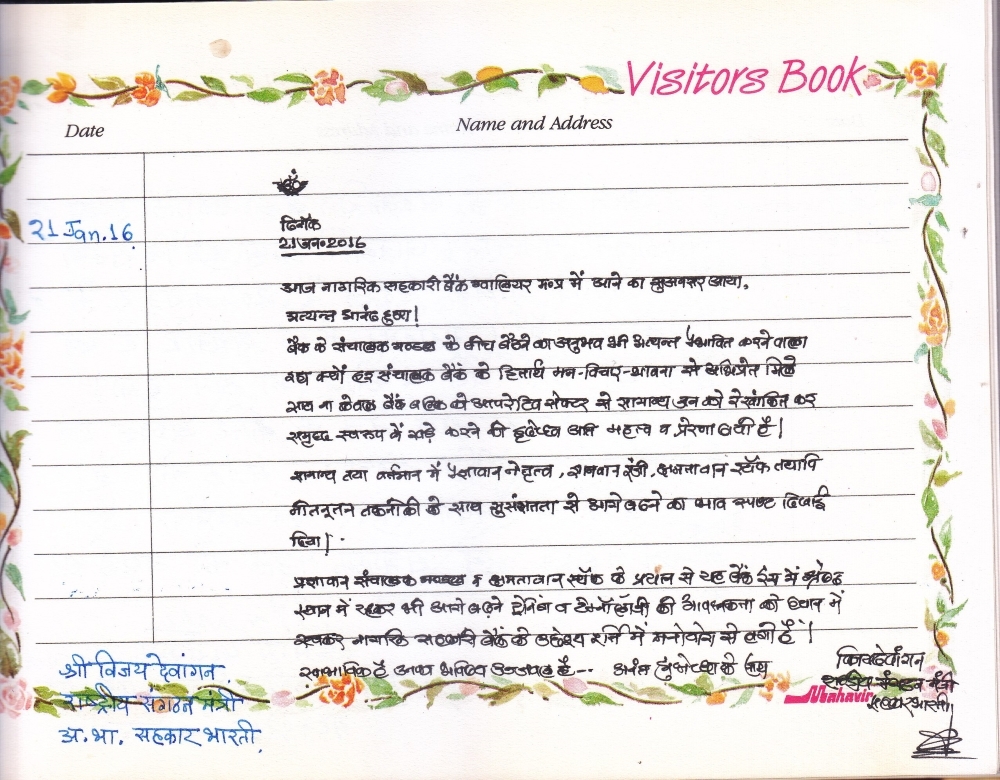 Visitors Book
Date
Name and Address
ॐ
21 Jan. 16
दिनाँक
21 जन॰ 2016
आज नागरिक सहकारी बैंक ग्वालियर म॰प्र में आने का सुअवसर आया,
अत्यन्त आनंद हुआ!
बैंक के संचालक मण्डल के बीच बैठने का अनुभव भी अत्यन्त प्रभावित करने वाला
रहा क्यों हर संचालक बैंक के हितार्थ मन-विचार-भावना से अभिप्रेत मिले
साथ ना केवल बैंक बल्कि को आपरेटिव सेक्टर से सामान्य जन को रेखांकित कर
समृद्ध स्वरूप में खड़े करने की महत्व व प्रेरणा लयी है!
सामान्य तथा वर्तमान में प्रज्ञावान नेतृत्व, क्षमतावान स्टॉफ तथापि
नीतनूतन तकनीकी के साथ सुसंज्ञतता से आगे बढने का भाव स्पष्ट दिखाई
दिया!
प्रज्ञावान संचालक मण्डल व क्षमतावान स्टॉफ के प्रयत्न से यह बैंक देश में श्रेष्ठ
स्थान में रहकर भी आगे बढ़ने ट्रेनिंग व टेक्नॉलॉजी की आवश्यकता को ध्यान में
रखकर नागरिक सहकारी बैंक के उद्देश्य में मनोयोग से लगी है!
स्वाभाविक है आपका भविष्य उज्जवल है-- अनंत शुभेच्छा के साथ
विजय देवांगन
राष्ट्रीय संगठन मंत्री
सहकार भारती
Mahavir
श्री विजय देवांगन,
राष्ट्रीय संगठन मंत्री
अ. भा. सहकार भारती,